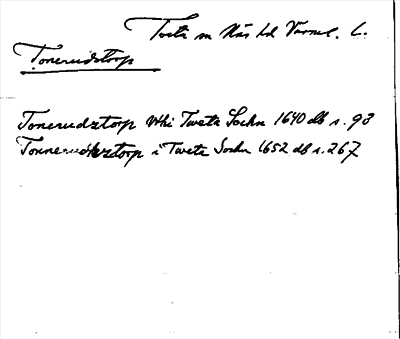 Tveta sn Näs hd Värml. l.
Tonerudstorp
Tonerudztorp vthi Tweta Sochn 1640 db s. 93
Tonnerudztorp i Tweta Sochn 1652 db s. 267